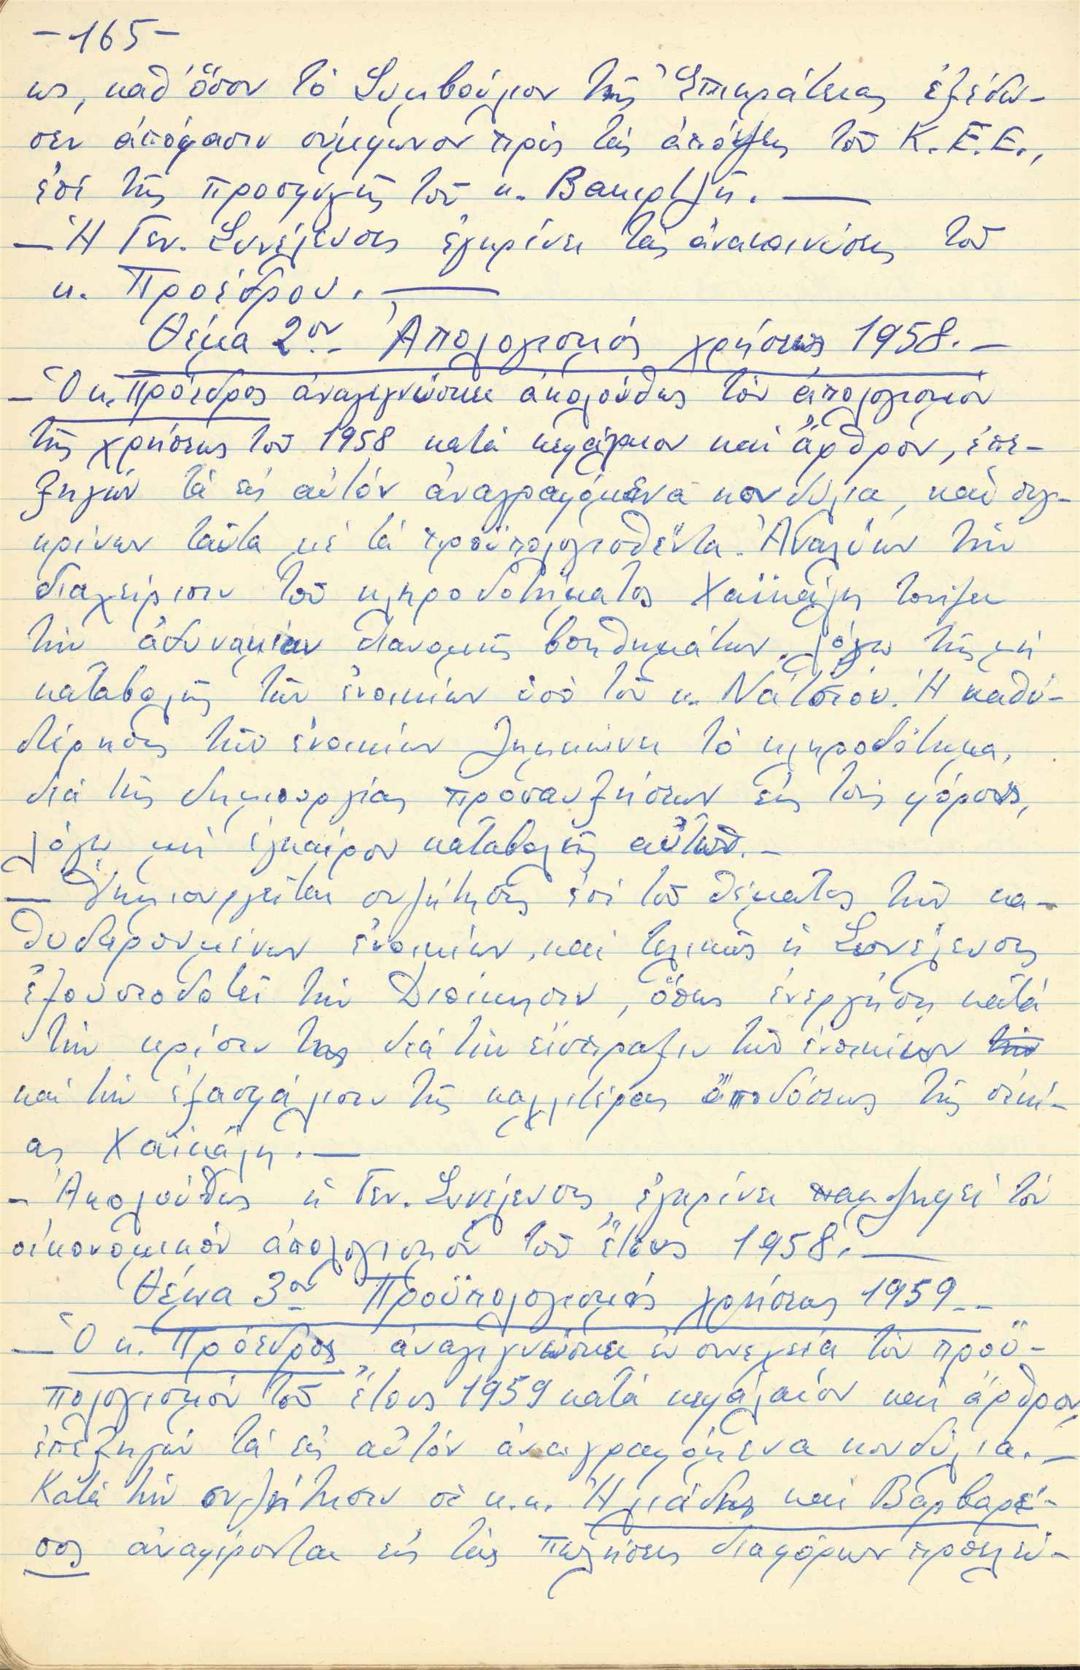 -165-
ως, καθ' ὅσον τό Συμβούλιον τῆς Ἐπικρατείας ἐξέδω-
σεν ἀπόφασιν σύμφωνον πρός τάς ἀπόψεις τοῦ Κ.Ε.Ε.,
ἐπί τῆς προσφυγῆς τοῦ κ. Βακιρτζῆ. —
— Ἡ Γεν. Συνέλευσις ἐγκρίνει τάς ἀνακοινώσεις τοῦ
κ. Προέδρου. —
Θέμα 2ον Ἀπολογισμός χρήσεως 1958. —
— Ὁ κ. Πρόεδρος ἀναγιγνώσκει ἀκολούθως τόν ἀπολογισμόν
τῆς χρήσεως τοῦ 1958 κατά κεφάλαιον καί ἄρθρον, ἐπε-
ξηγῶν τά εἰς αὐτόν ἀναγραφόμενα κονδύλια, καί συγ-
κρίνων ταῦτα μέ τά προϋπολογισθέντα. Ἀναλύων τήν
διαχείρισιν τοῦ κληροδοτήματος Χαϊκάλη τονίζει
τήν ἀδυναμίαν διανομῆς βοηθημάτων, λόγω τῆς μή
καταβολῆς τῶν ἐνοικίων ὑπό τοῦ κ. Νάτσιου. Ἡ καθυ-
στέρησις τῶν ἐνοικίων ζημιώνει τό κληροδότημα,
διά τῆς δημιουργίας προσαυξήσεων εἰς τούς φόρους,
λόγω μή ἐγκαίρου καταβολῆς αὐτῶν. —
— Δημιουργεῖται συζήτησις ἐπί τοῦ θέματος τῶν κα-
θυστερουμένων ἐνοικίων, καί τελικῶς ἡ Συνέλευσις
ἐξουσιοδοτεῖ τήν Διοίκησιν, ὅπως ἐνεργήση κατά
τήν κρίσιν της διά τήν εἴσπραξιν τῶν ἐνοικίων
καί τήν ἐξασφάλισιν τῆς καλλιτέρας ἀποδόσεως τῆς οἰκί-
ας Χαϊκάλη. —
— Ἀκολούθως ἡ Γεν. Συνέλευσις ἐγκρίνει παμψηφεί τόν
οἰκονομικόν ἀπολογισμόν τοῦ ἔτους 1958. —
Θέμα 3ον Προϋπολογισμός χρήσεως 1959 —
— Ὁ κ. Πρόεδρος ἀναγιγνώσκει ἐν συνεχεία τόν προϋ-
πολογισμόν τοῦ ἔτους 1959 κατά κεφάλαιον καί ἄρθρον
ἐπεξηγῶν τά εἰς αὐτόν ἀναγραφόμενα κονδύλια. —
Κατά τήν συζήτησιν οἱ κ.κ. Ἠλιάδης καί Βαρβαρέ-
σος ἀναφέρονται εἰς τάς πωλήσεις διαφόρων προϊόν-